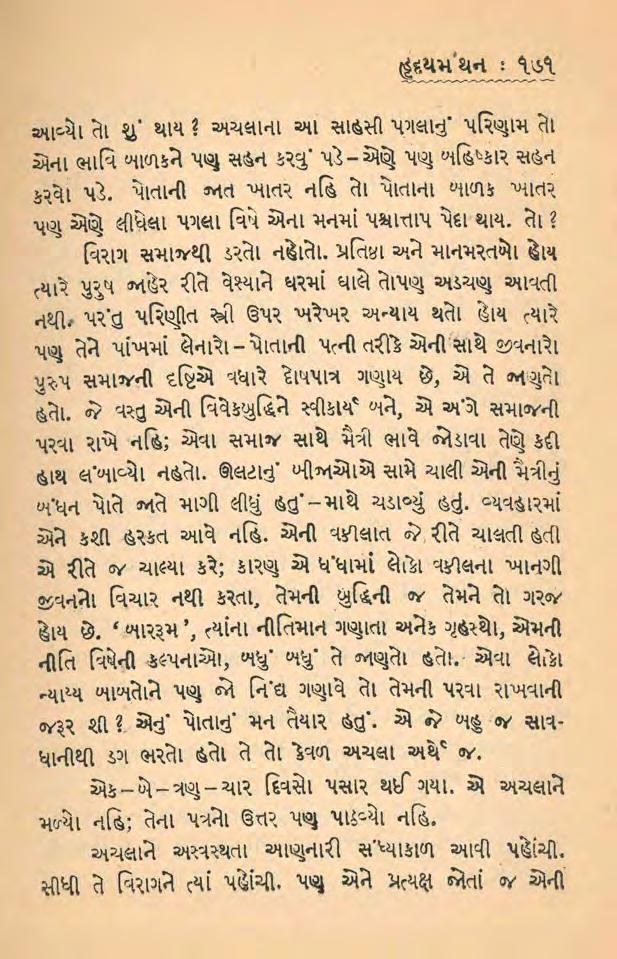 હૃદયમંથન : ૧૭૧
આવ્યો તો શું થાય ? અચલાના આ સાહસી પગલાનું પરિણામ તો
એના ભાવિ બાળકને પણ સહન કરવું પડે – એણે પણ બહિષ્કાર સહન
કરવો પડે. પોતાની જાત ખાતર નહિ તો પોતાના બાળક ખાતર
પણ એણે લીધેલા પગલા વિષે એના મનમાં પશ્ચાત્તાપ પેદા થાય. તો ?
વિરાગ સમાજથી ડરતો નહોતો. પ્રતિષ્ઠા અને માનમરતબો હોય
ત્યારે પુરુષ જાહેર રીતે વેશ્યાને ઘરમાં ઘાલે તોપણ અડચણ આવતી
નથી. પરંતુ પરિણીત સ્ત્રી ઉપર ખરેખર અન્યાય થતો હોય ત્યારે
પણ તેને પાંખમાં લેનારો – પોતાની પત્ની તરીકે એની સાથે જીવનારો
પુરુષ સમાજની દૃષ્ટિએ વધારે દોષપાત્ર ગણાય છે, એ તે જાણતો
હતો. જે વસ્તુ એની વિવેકબુદ્ધિને સ્વીકાર્ય બને, એ અંગે સમાજની
પરવા રાખે નહિ; એવા સમાજ સાથે મૈત્રી ભાવે જોડાવા તેણે કદી
હાથ લંબાવ્યો નહતો. ઊલટાનું બીજાઓએ સામે ચાલી એની મૈત્રીનું
બંધન પોતે જાતે માગી લીધું હતું – માથે ચડાવ્યું હતું. વ્યવહારમાં
એને કશી હરકત આવે નહિ. એની વકીલાત જે રીતે ચાલતી હતી
એ રીતે જ ચાલ્યા કરે; કારણ એ ધંધામાં લોકો વકીલના ખાનગી
જીવનનો વિચાર નથી કરતા, તેમની બુદ્ધિની જ તેમને તો ગરજ
હોય છે. ‘ બારરૂમ ’, ત્યાંના નીતિમાન ગણાતા અનેક ગૃહસ્થો, એમની
નીતિ વિષેની કલ્પનાઓ, બધું બધું તે જાણતો હતો. એવા લોકો
ન્યાય્ય બાબતોને પણ જો નિંદ્ય ગણાવે તો તેમની પરવા રાખવાની
જરૂર શી ? એનું પોતાનું મન તૈયાર હતું. એ જે બહુ જ સાવ-
ધાનીથી ડગ ભરતો હતો તે તો કેવળ અચલા અર્થે જ.
એક – બે – ત્રણ – ચાર દિવસો પસાર થઈ ગયા. એ અચલાને
મળ્યો નહિ; તેના પત્રનો ઉત્તર પણ પાઠવ્યો નહિ.
અચલાને અસ્વસ્થતા આણનારી સંધ્યાકાળ આવી પહોંચી.
સીધી તે વિરાગને ત્યાં પહોંચી. પણ એને પ્રત્યક્ષ જોતાં જ એની